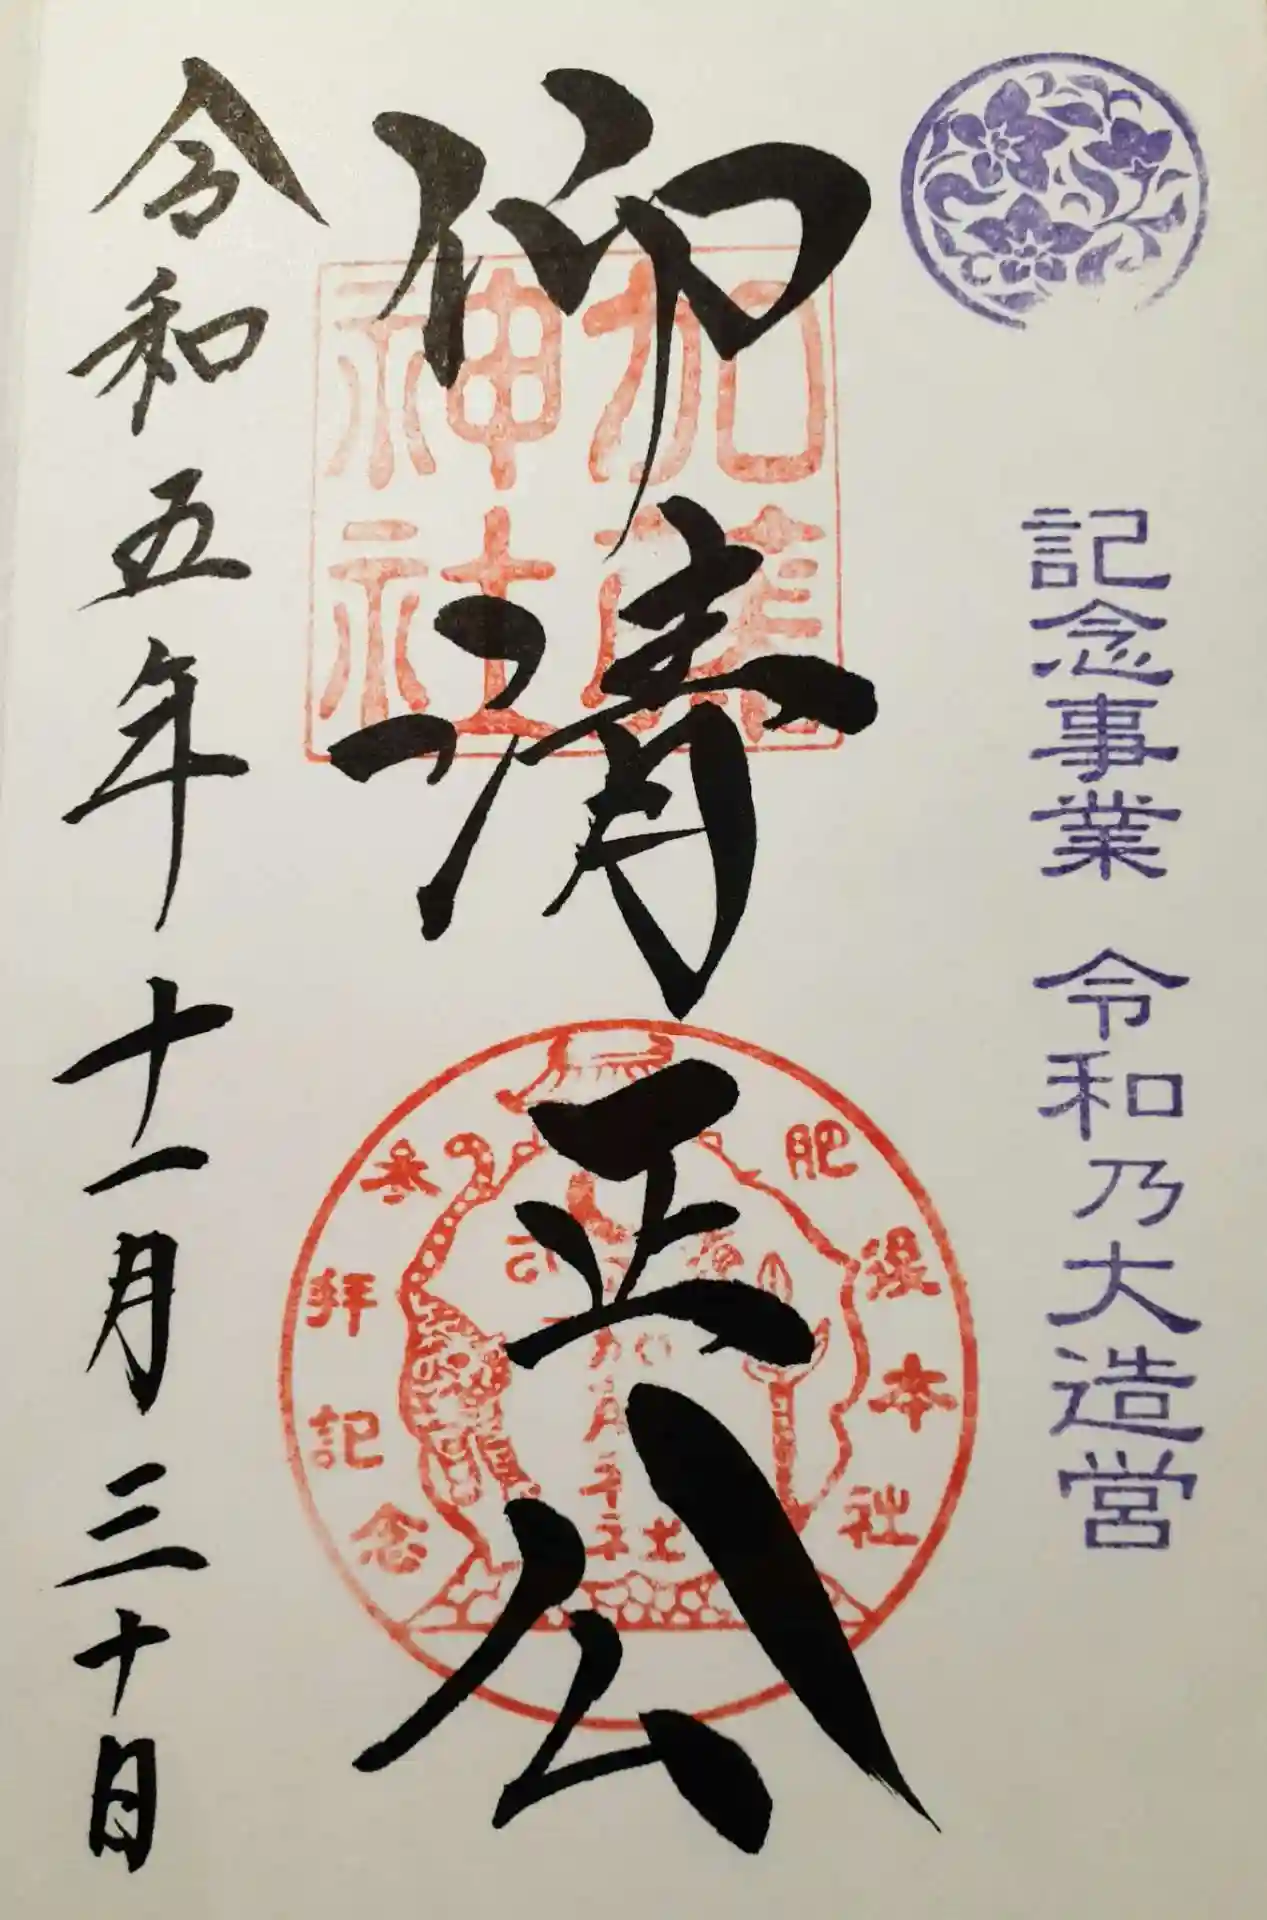 記念事業 令和乃大造営
仰清正公
加藤
神社
肥後本社
参拝記念
令和五年十一月三十日